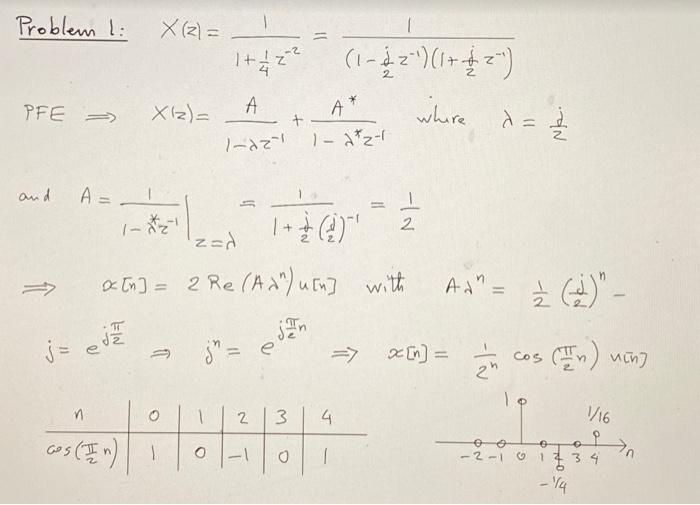 Problem 1: X(z) = 1 / (1 + 1/4 z^-2) = 1 / ((1 - j/2 z^-1)(1 + j/2 z^-1))
PFE ⇒ X(z) = A / (1 - λz^-1) + A* / (1 - λ*z^-1) where λ = j/2
and A = 1 / (1 - λ*z^-1) |z=λ = 1 / (1 + j/2 (j/2)^-1) = 1/2
⇒ x[n] = 2 Re(Aλ^n) u[n] with Aλ^n = 1/2 (j/2)^n -
j = e^(jπ/2) ⇒ j^n = e^(jπ/2 n) ⇒ x[n] = 1/2^n cos(π/2 n) u[n]
n 0 1 2 3 4
cos(π/2 n) 1 0 -1 0 1
1 1/16
-2 -1 0 1 2 3 4 n
-1/4